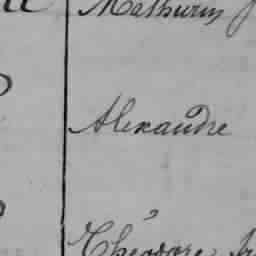 Mathurin
Alexandre
Théodore